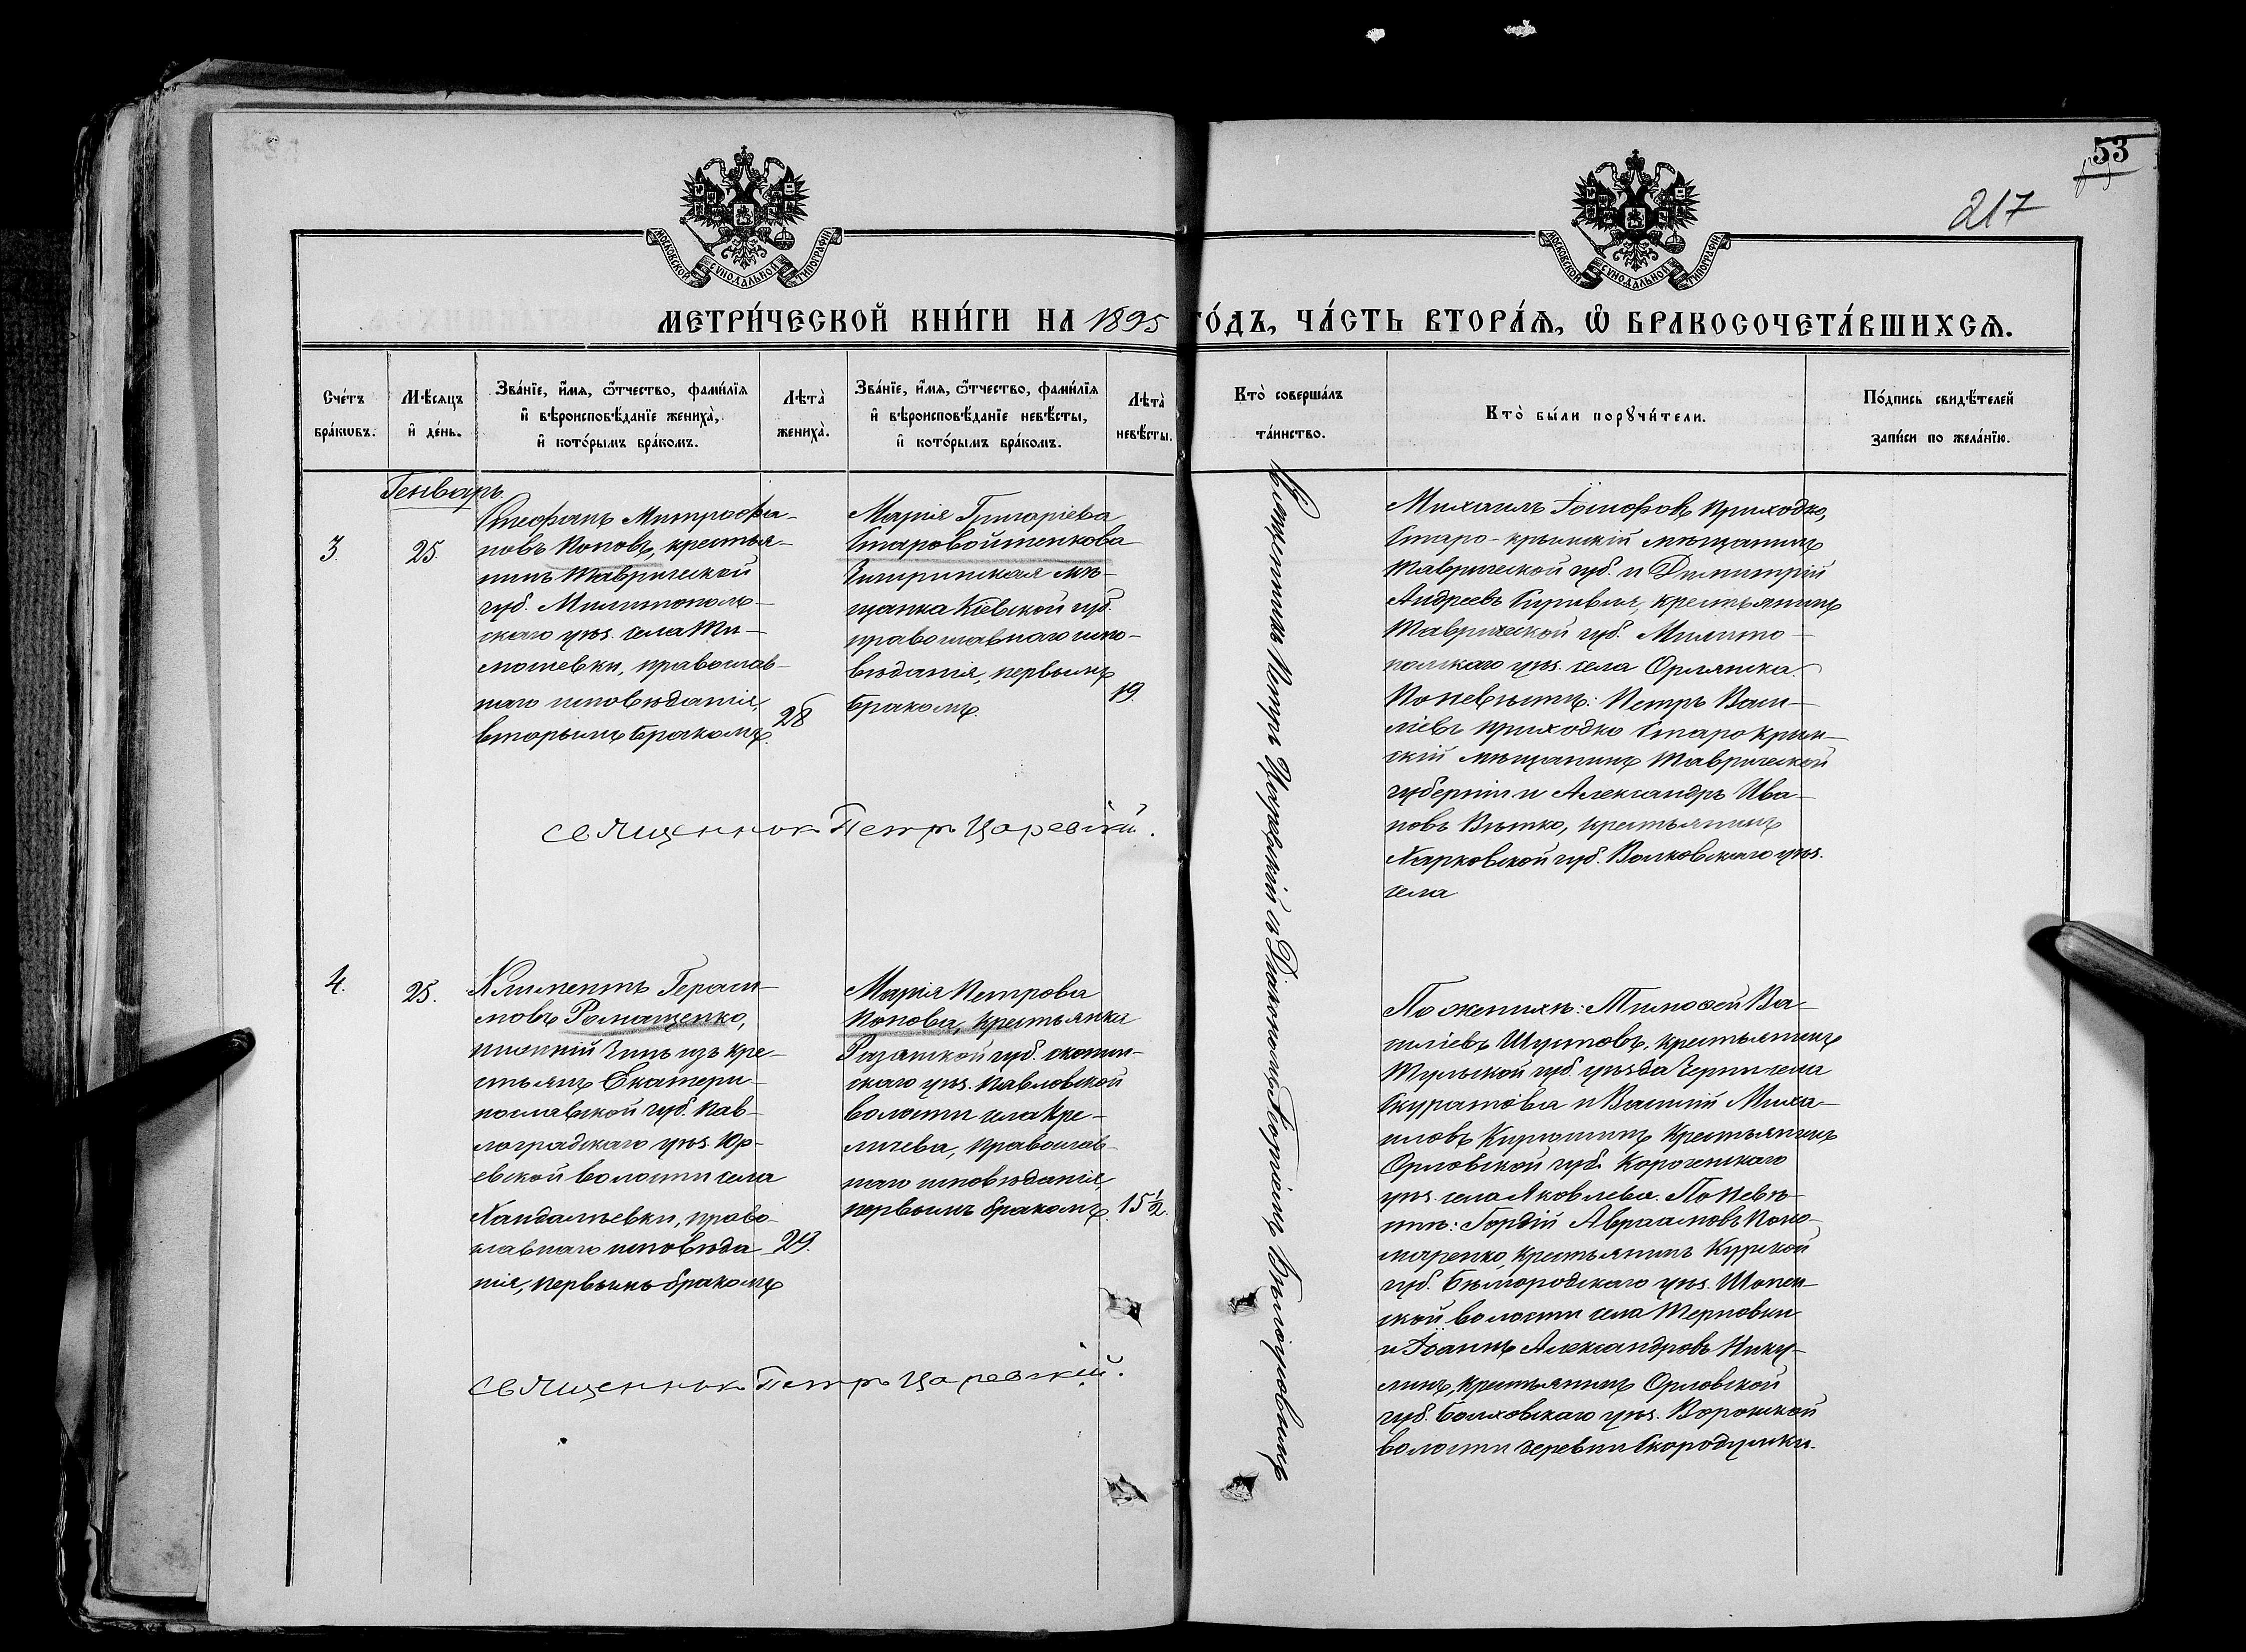 53
217
МОСКОВСКОЙ СУНОДАЛЬНОЙ ТИПОГРАФІИ
МОСКОВСКОЙ СУНОДАЛЬНОЙ ТИПОГРАФІИ
МЕТРИ́ЧЕСКОЙ КНИ́ГИ НА 1895
ГО́ДЪ, ЧА́СТЬ ВТОРА́Ѧ, Ѽ БРАКОСОЧЕТА́ВШИХСѦ.
Сче́тъ
бра́кѡвъ.
Мѣ́сѧцъ
и҆ де́нь.
Зва́нїе, и҆́мѧ, ѻ҆́тчество, фами́лїѧ
и҆ вѣроисповѣ́данїе жениха̀,
и҆ кото́рымъ бра́комъ.
Лѣта̀
жениха̀.
Зва́нїе, и҆́мѧ, ѻ҆́тчество, фами́лїѧ
и҆ вѣроисповѣ́данїе невѣ́сты,
и҆ кото́рымъ бра́комъ.
Лѣта̀
невѣ́сты.
Кто̀ соверша́лъ
та́инство.
Кто̀ бы́ли порꙋчи́тели.
По́дпись свидѣ́телей
за́писи по жела́нїю.
Генварь.
3.
25.
Стефанъ Митрофа-
новъ Поповъ, крестья-
нинъ Таврической
губ. Милитополь-
скаго уѣз. села Ти-
мошевки, православ-
наго исповѣданія,
вторымъ бракомъ.
28
Марія Григоріева
Старовойтенкова
Чигиринская мѣ-
щанка Кіевской губ.
православнаго испо-
вѣданія, первымъ
бракомъ.
19.
Священник Петръ Царевскій.
Священникъ Петръ Царевскій съ Діакономъ
Михаилъ Приходко,
Старо-крымскій мѣщанинъ
Таврической губ. и Димитрій
Андреевъ крестьянинъ
Таврической губ. Милито-
польскаго уѣз. села Орлянска.
По невѣстѣ: Петръ Васи-
ліевъ Приходко Старо крым-
скій мѣщанинъ Таврической
губерніи и Александръ Ива-
новъ Витко, крестьянинъ
Харковской губ. Волковскаго уѣз.
села
4.
25.
Климентъ Гераси-
мовъ Ромащенко,
нижній чинъ изъ кре-
стьянъ Екатери-
нославской губ. Пав-
лоградскаго уѣз. Юр-
евской волости села
Хандалѣевки, право-
славнаго исповѣда
нія, первымъ бракомъ
29.
Марія Петрова
Попова, крестьянка
Разанской губ. скопин-
скаго уѣз. Павловской
волости села Кре-
мичева, православ-
наго исповѣданія,
первымъ бракомъ.
15 ½.
Священник Петръ Царевскій.
По женихѣ: Тимоѳей Ва-
силіевъ Шустовъ, крестьянинъ
Тульской губ. уѣзда Черни села
Скуратова и Василій Миха-
иловъ крестьянинъ
Орловской губ.
уѣз. села Яковлева. По невѣ-
стѣ: Гордій Авраамовъ Поно-
маренко, крестьянинъ Курской
губ. Бѣлгородскаго уѣз. Шопен-
ской волости села Терновки
и Іоаннъ Александровъ Нику-
линъ, крестьянинъ Орловской
губ. Болховскаго уѣз.
волости деревни